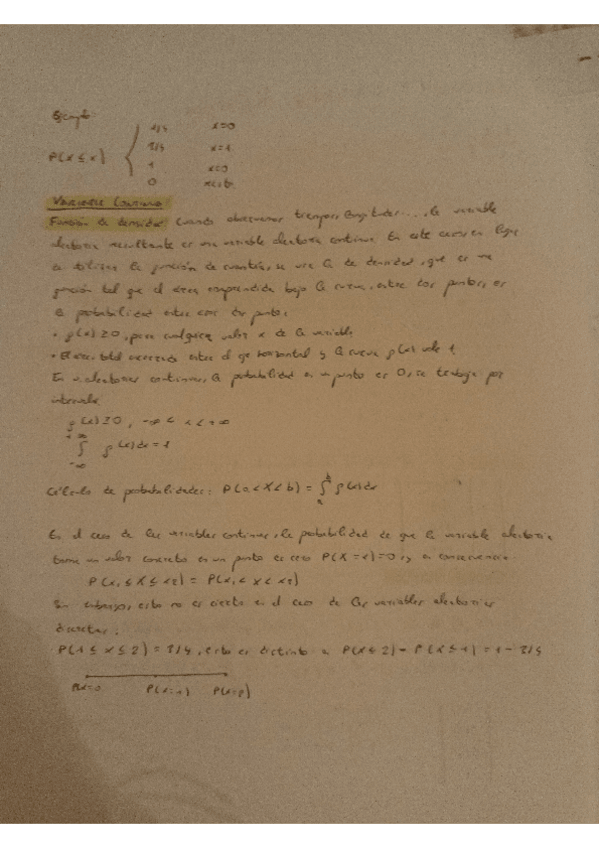 Ejemplo
P(X ≤ x) { 1/4 x=0
3/4 x=1
1 x=2
0 x<0
VARIABLE CONTINUA:
Función de densidad: Cuando observamos tiempos, longitudes..., la variable
aleatoria resultante es una variable aleatoria continua. En este caso, en lugar
de utilizar la función de cuantía, se usa la de densidad, que es una
función tal que el área comprendida bajo la curva, entre dos puntos, es
la probabilidad entre esos dos puntos.
• f(x) ≥ 0, para cualquier valor x de la variable
• El área total encerrada entre el eje horizontal y la curva f(x) vale 1.
En v. aleatorias continuas, la probabilidad en un punto es 0, se trabaja por
intervalos.
f(x) ≥ 0, -∞ < x < +∞
∫_{-∞}^{+∞} f(x)dx = 1
Cálculo de probabilidades: P(a<X<b) = ∫_a^b f(x)dx
En el caso de las variables continuas, la probabilidad de que la variable aleatoria
tome un valor concreto en un punto es cero P(X=x)=0 y, en consecuencia:
P(x₁ ≤ X ≤ x₂) = P(x₁ < X < x₂)
Sin embargo, esto no es cierto en el caso de las variables aleatorias
discretas.
P(1 ≤ x ≤ 2) = 3/4, esto es distinto a P(X≤2) - P(X≤1) = 1 - 3/4
P(x=0 P(x=1) P(x=2)